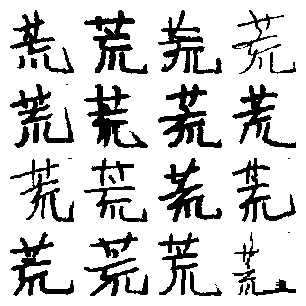 荒荒荒荒
荒荒荒荒
荒荒荒荒
荒荒荒荒